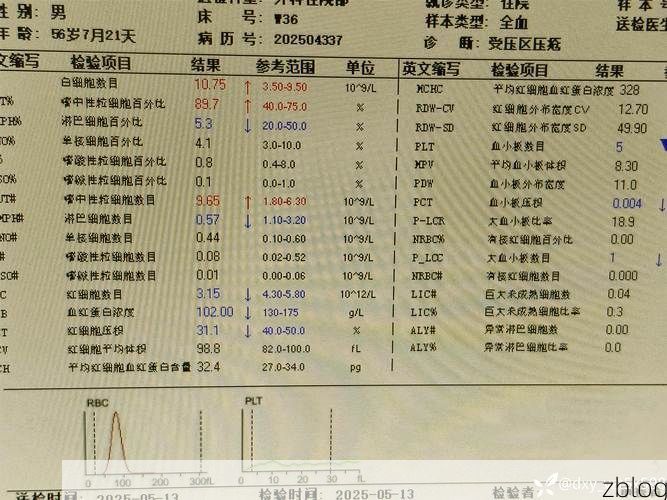 性 别: 男
床 号: W36
就诊类型: 住院
样本类型: 全血
送检医生
年 龄: 56岁7月21天
病 历 号: 202504337
诊 断: 受压区压疮
文缩写 检验项目 结果 参考范围 单位 英文缩写 检验项目 结果
白细胞数目 10.75 ↑ 3.50-9.50 10^9/L MCHC 平均红细胞血红蛋白浓度 328
T% 嗜中性粒细胞百分比 89.7 ↑ 40.0-75.0 % RDW-CV 红细胞分布宽度CV 12.70
MPH% 淋巴细胞百分比 5.3 ↓ 20.0-50.0 % RDW-SD 红细胞分布宽度SD 49.90
NO% 单核细胞百分比 4.1 3.0-10.0 % PLT 血小板数目 5
% 嗜酸性粒细胞百分比 0.8 0.4-8.0 % MPV 平均血小板体积 8.30
SO% 嗜碱性粒细胞百分比 0.1 0.0-1.0 % PDW 血小板分布宽度 11.0
UT# 嗜中性粒细胞数目 9.65 ↑ 1.80-6.30 10^9/L PCT 血小板压积 0.004 ↓
MPH# 淋巴细胞数目 0.57 ↓ 1.10-3.20 10^9/L P-LCR 大血小板比率 18.9
NO# 单核细胞数目 0.44 0.10-0.60 10^9/L NRBC% 有核红细胞百分比 0.00
# 嗜酸性粒细胞数目 0.08 0.02-0.52 10^9/L P_LCC 大血小板数目 1 ↓
SO# 嗜碱性粒细胞数目 0.01 0.00-0.06 10^9/L NRBC# 有核红细胞数目 0.000
C 红细胞数目 3.15 ↓ 4.30-5.80 10^12/L LIC# 巨大未成熟细胞数 0.04
B 血红蛋白浓度 102.00 ↓ 130-175 g/L LIC% 巨大未成熟细胞比率 0.3
CT 红细胞压积 31.1 ↓ 40.0-50.0 % ALY# 异常淋巴细胞数 0.00
CV 红细胞平均体积 98.8 82.0-100.0 fL ALY% 异常淋巴细胞比率 0.0
CH 平均红细胞血红蛋白含量 32.4 27.0-34.0 pg
RBC PLT
100 200 300fL 10 20 30 fL
送检时间: 2025-05-13 检验时间: 2025-05-13 检验者
zblog